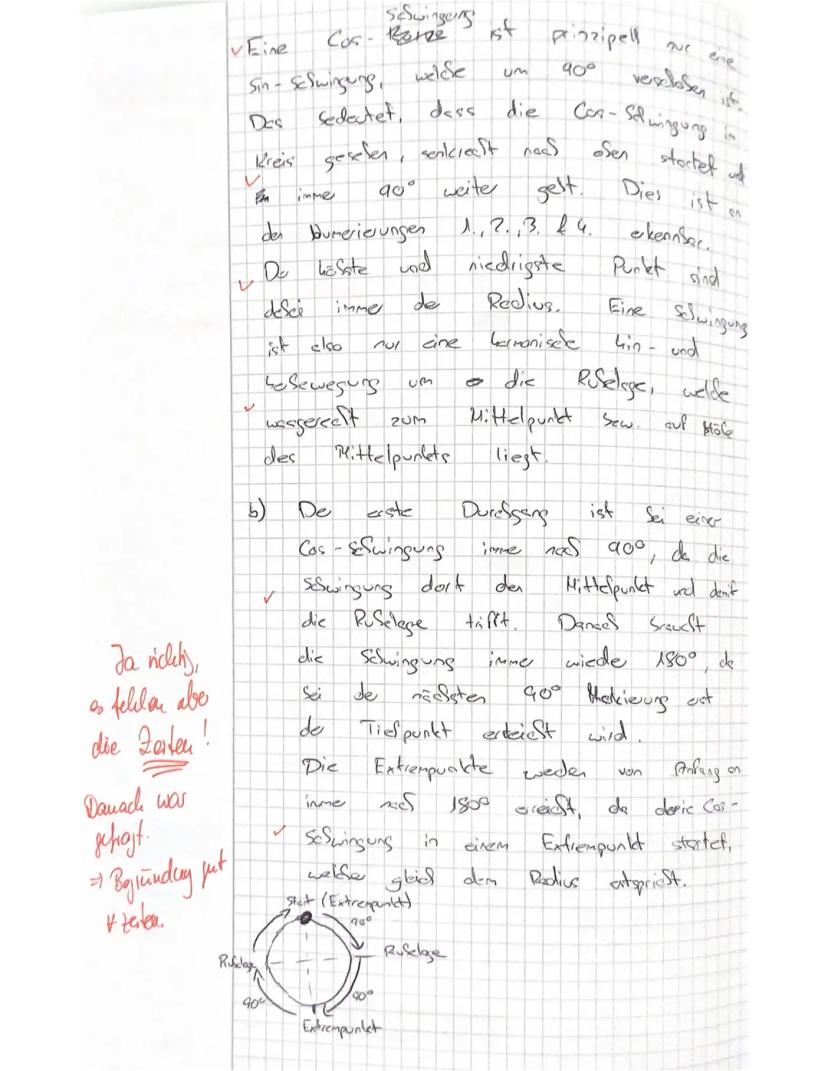 Schwingung
Eine Cos- Kurve ist prinzipell nur eine
Sin-Schwingung, welche um 90° verschoben ist.
Das bedeutet, dass die Cos-Schwingung im
Kreis gesehen, senkrecht nach oben startet und
immer 90° weiter geht. Dies ist an
den Numerierungen 1., 2., 3. & 4. erkennbar.
Der höchste und niedrigste Punkt sind
dabei immer der Radius. Eine Schwingung
ist also nur eine harmonische hin- und
herbewegung um die Ruhelage, welche
waagerecht zum Mittelpunkt bzw. auf Höhe
des Mittelpunkts liegt.
b) Der erste Durchgang ist bei einer
Cos-Schwingung immer nach 90°, da die
Schwingung dort den Mittelpunkt und damit
die Ruhelage trifft. Danach braucht
die Schwingung immer wieder 180°, da
bei der nächsten 90° Markierung erst
der Tiefpunkt erreicht wird.
Die Extrempunkte werden von Anfang an
immer nach 180° erreicht, da die Cos-
Schwingung in einem Extrempunkt startet,
welcher gleich dem Radius entspricht.
Ja richtig,
es fehlen aber
die Zeiten!
Danach war
gefragt.
⇒ Begründung gut
Zeiten.
Start (Extrempunkt)
90°
Ruhelage
Ruhelage
90°
90°
Extrempunkt